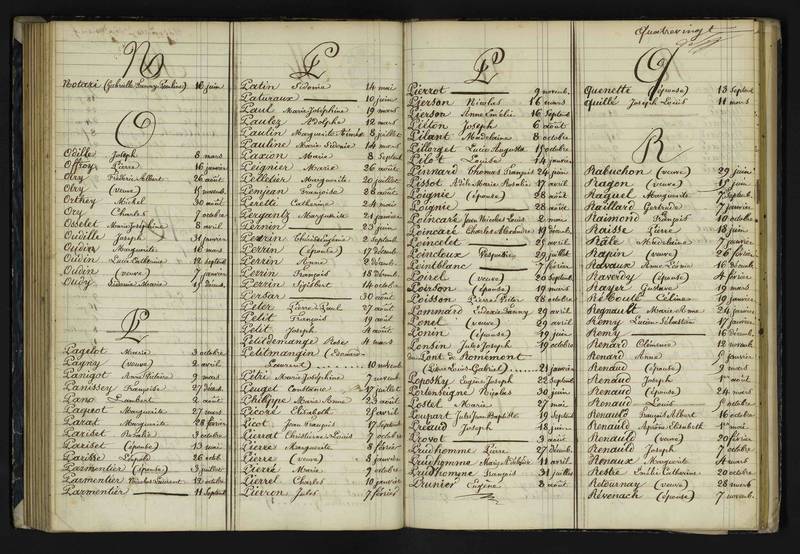 N
Notari (Gabrielle Fanny Pauline) 16 juin
O
Odille Joseph 8 mars
Offroy Pierre 16 janvier
Olry Frédéric Albert 26 août
Olry (veuve) 15 novemb.
Orthey Michel 30 août
Ory Charles 7 octobre
Osselet Marie Joséphine 8 avril
Oudille Joseph 31 janvier
Oudin Marguerite 16 mai
Oudin Lucie Catherine 12 septemb
Oudin (veuve) 7 janvier
Oudy Sidonie Marie 15 décemb.
P
Pagelot Marie 3 octobre
Pagny (veuve) 2 avril
Panigot 9 mars
Panissey Françoise 27 décemb.
Pano Lambert 2 août
Paquot Marguerite 27 mars
Parat Marguerite 28 février
Pariset Rosalie 3 octobre
Pariset (épouse) 13 mai
Parisse Joseph 26 octob.
Parmentier (épouse) 3 juillet
Parmentier Nicolas Laurent 12 octobre
Parmentier 11 Septemb
P
Patin Sidonie 14 mai
Patureaux 10 juin
Paul Marie Joséphine 19 mars
Paulez Adolphe 12 mars
Paulin Marguerite 8 juillet
Pauline Marie Sidonie 14 mars
Paxion Marie 8 Septemb
Peignier Marie 26 août
Pelletier Marguerite 20 juillet
Pemjean Françoise 28 août
Peretti Catherine 24 mai
Pergantz Marguerite 21 janvier
Pernin 23 juin
Perrin 2 Septemb
Perrin (épouse) 17 décemb.
Perrin Anne 2 décemb.
Perrin François 18 décemb.
Perrin Sigisbert 14 octobre
Persas 30 août
Peter Pierre Paul 27 août
Petit François 19 août
Petit Joseph 4 août
Petitdemange Rose 4 mars
Petitmangin (Edouard-
Laurent) 10 novemb
Petre Marie Joséphine 7 novemb
Peuget Constance 17 juillet
Philippe Marie Anne 23 août
Picoré Elisabeth 25 avril
Picot Jean François 17 Septemb
Pierrat Christienne Louis 7 octobre
Pierre Marguerite 8 février
Pierre (veuve) 8 janvier
Pierré Marie 7 octobre
Pierrel Charles 10 janvier
Pierron Jules 7 février
P
Pierrot 9 novemb.
Pierson Nicolas 16 mars
Pierson Anne Emélie 16 Septemb
Pilton Joseph 6 août
Pilant Madelaine 8 octobre
Pillorget Lucie Augusta 15 octobre
Pilot Louise 14 janvier
Pinnard Thomas François 24 juin
Pissot Adile Marie Rosalie 17 avril
Poignie (épouse) 28 août
Poignie 28 août
Poincaré Jean Nicolas Louis 2 mai
Poincaré Charles Alexandre 19 décemb
Poincelet 25 avril
Poincloux 29 juillet
Pointblanc 7 février
Poirel (veuve) 20 Septemb
Poirson (épouse) 19 mars
Poisson Pierre Peter 28 octobre
Pommard Eudoxie Fanny 29 avril
Ponel (veuve) 29 avril
Ponin (épouse) 19 juin
Ponsin Jules Joseph 19 octobre
du Pont de Romémont
(Pierre Louis Gabriel) 21 janvier
Poposky Eugène Joseph 22 Septemb
Portenseigne Nicolas 30 juin
Postel Marie 27 mai
Poupart Jules Jean Baptiste 19 Septemb
Préaud Joseph 18 juin
Provot 3 août
Prudhomme Pierre 27 décemb.
Prudhomme Marie Adélaïde 11 avril
Prudhomme François 31 juillet
Prunier Eugène 8 août
Quatrevingt
Q
Quenette (épouse) 13 Septemb
Quille Joseph Louis 11 mars
R
Rabuchon (veuve) 29 juin
Ragon (veuve) 15 juin
Raguel Marguerite 7 Septemb
Raillard Gertrude 7 janvier
Raimond François 10 octobre
Raisse Pierre 18 juin
Râle Madelaine 7 janvier
Rapin (veuve) 26 février
Ravaux Anne Léonie 16 décemb
Raverdy (épouse) 4 février
Rayer Gustave 19 mars
Réboule Céline 19 janvier
Regnault Marie Anne 24 janvier
Remy Lucien Sébastien 17 janvier
Remy 16 décemb.
Renard Clémence 12 novemb
Renard Anne 8 janvier
Renaud (épouse) 9 mars
Renaud Joseph 1er août
Renaud (épouse) 24 mars
Renaud Louis 8 octobre
Renauld François Albert 16 octobre
Renauld Elisabeth 1er mai
Renauld (veuve) 20 février
Renauld Joseph 7 octobre
Renaux Marguerite 4 mars
Restre Emilie Catherine 20 octobre
Retournay (veuve) 28 mars
Révenach (épouse) 7 novemb.